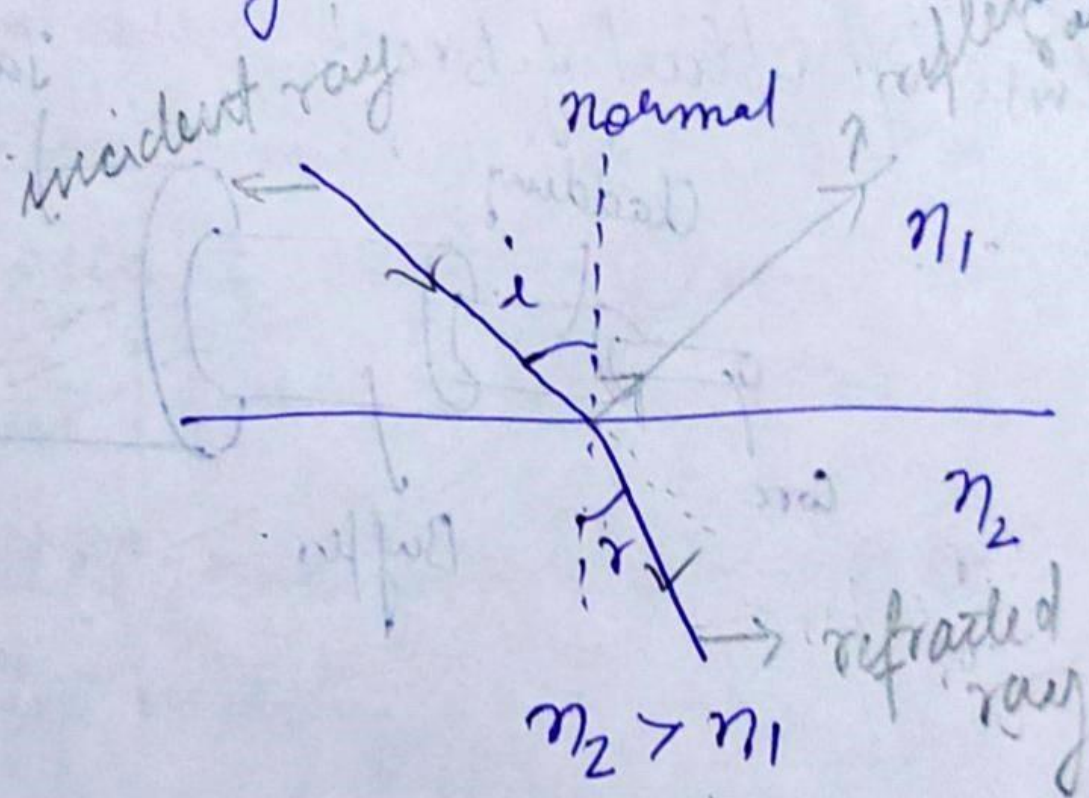 incident ray
normal
i
n1
n2
r
refracted
ray
n2 > n1